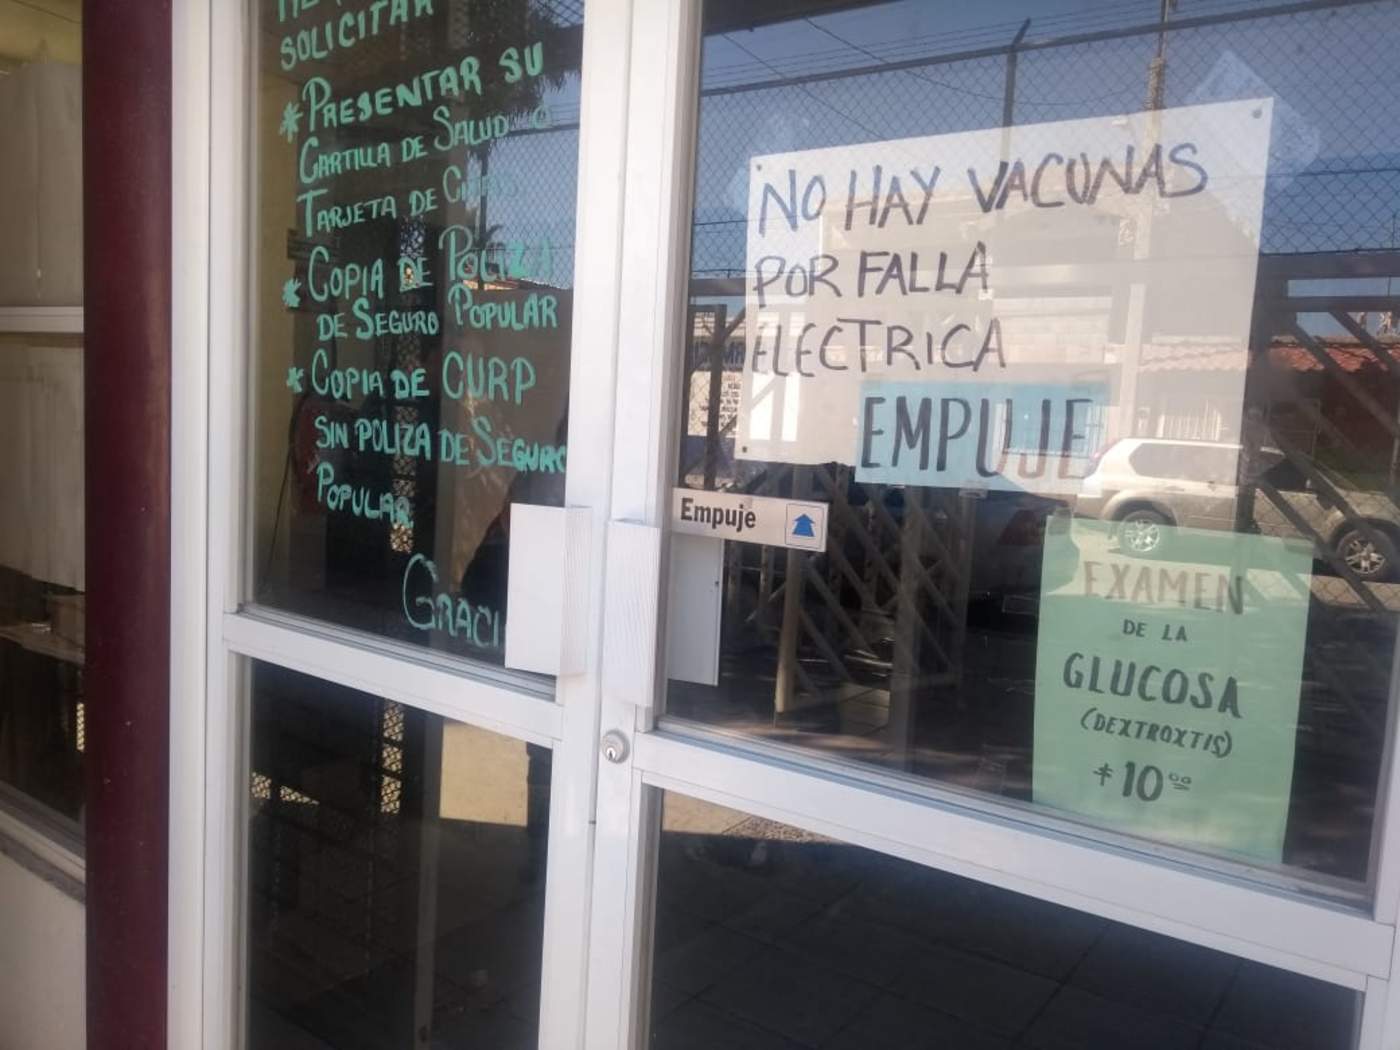 SOLICITAR
* PRESENTAR SU
CARTILLA DE SALUD O
TARJETA DE CITAS
* COPIA DE POLIZA
DE SEGURO POPULAR
* COPIA DE CURP
SIN POLIZA DE SEGURO
POPULAR
GRACI
NO HAY VACUNAS
POR FALLA
ELECTRICA
EMPUJE
Empuje
EXAMEN
DE LA
GLUCOSA
(DEXTROXTIS)
$10.00